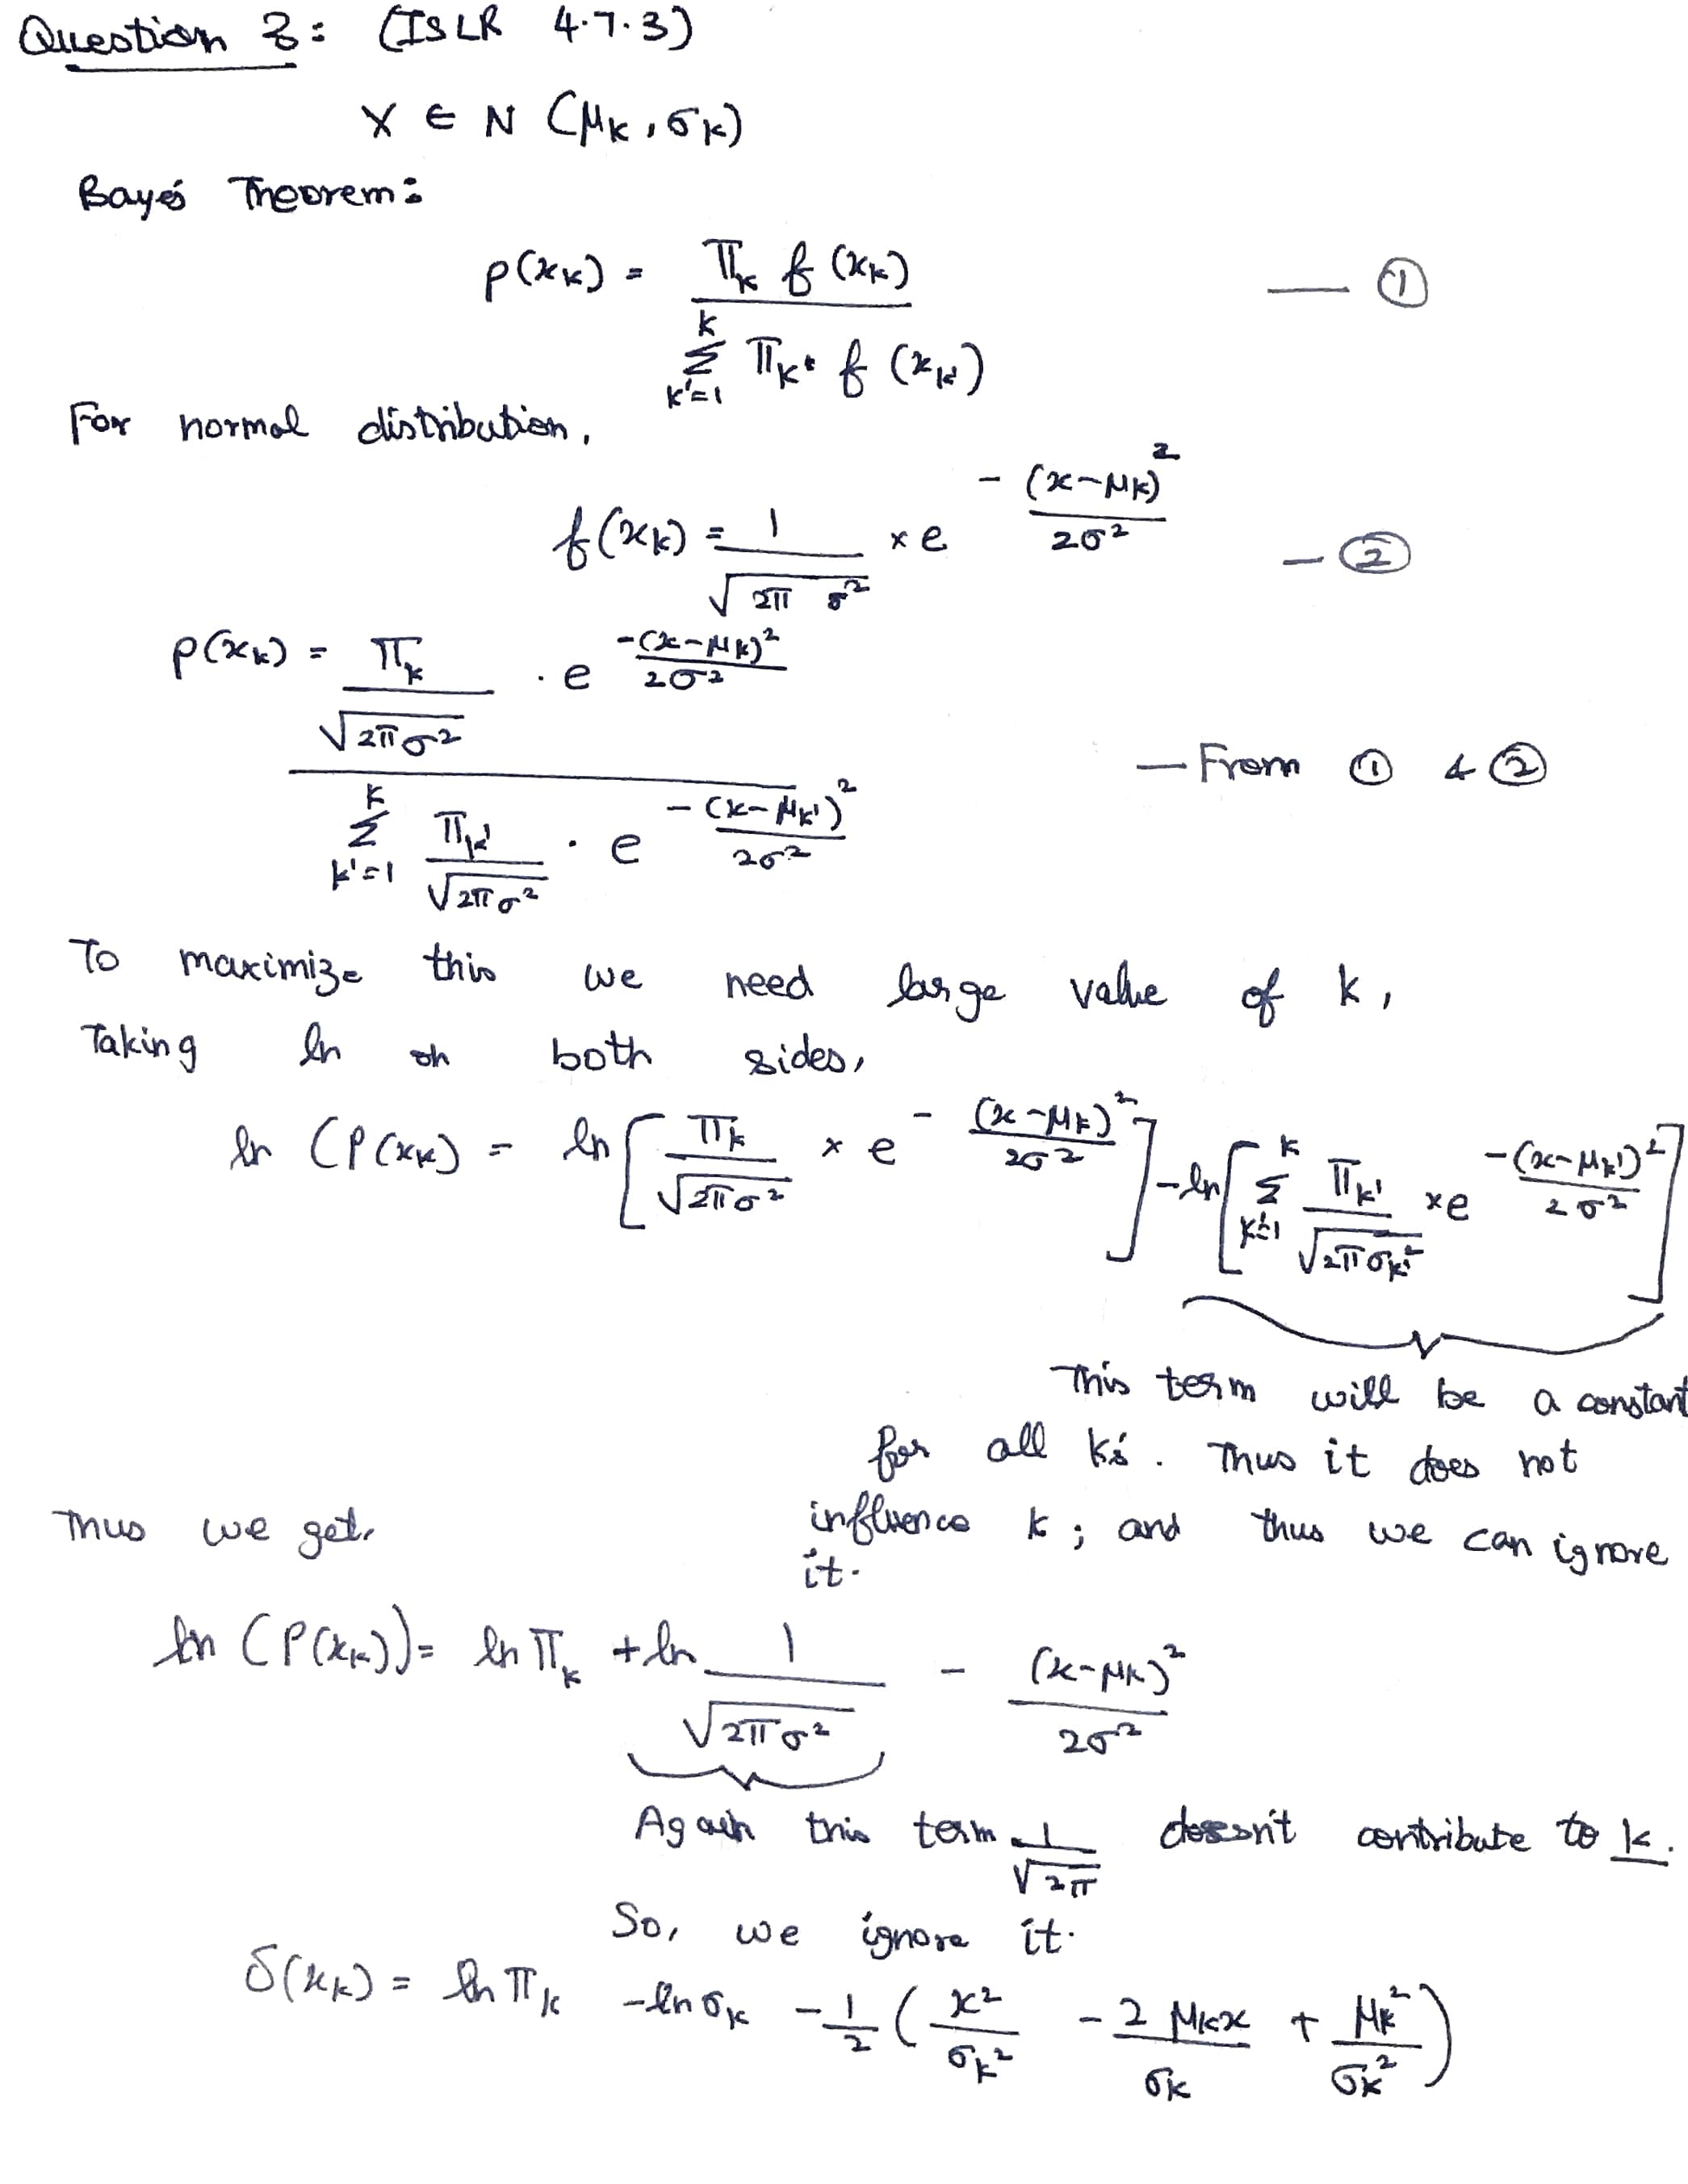 Question 3: (ISLR 4.7.3)
X ∈ N (μk, σk)
Baye's Theorem:
p(xk) = πk f(xk) / Σ_{k'=1}^{k} πk' f(xk') — ①
For normal distribution,
f(xk) = 1/√(2π σ²) × e^{-(x-μk)²/2σ²} — ②
p(xk) = (πk/√(2πσ²) · e^{-(x-μk)²/2σ²}) / (Σ_{k'=1}^{k} πk'/√(2πσ²) · e^{-(x-μk')²/2σ²}) — From ① & ②
To maximize this we need large value of k,
Taking ln on both sides,
ln (P(xk) = ln[πk/√(2πσ²) × e^{-(x-μk)²/2σ²}] - ln[Σ_{k'=1}^{k} πk'/√(2πσk'²) × e^{-(x-μk')²/2σ²}]
This term will be a constant
for all k's. Thus it does not
influence k; and thus we can ignore
it.
Thus we get,
ln (P(xk)) = ln πk + ln 1/√(2πσ²) - (x-μk)²/2σ²
Again this term 1/√(2π) doesn't contribute to k.
So, we ignore it.
δ(xk) = ln πk - ln σk - 1/2 (x²/σk² - 2 μk x/σk + μk²/σk²)